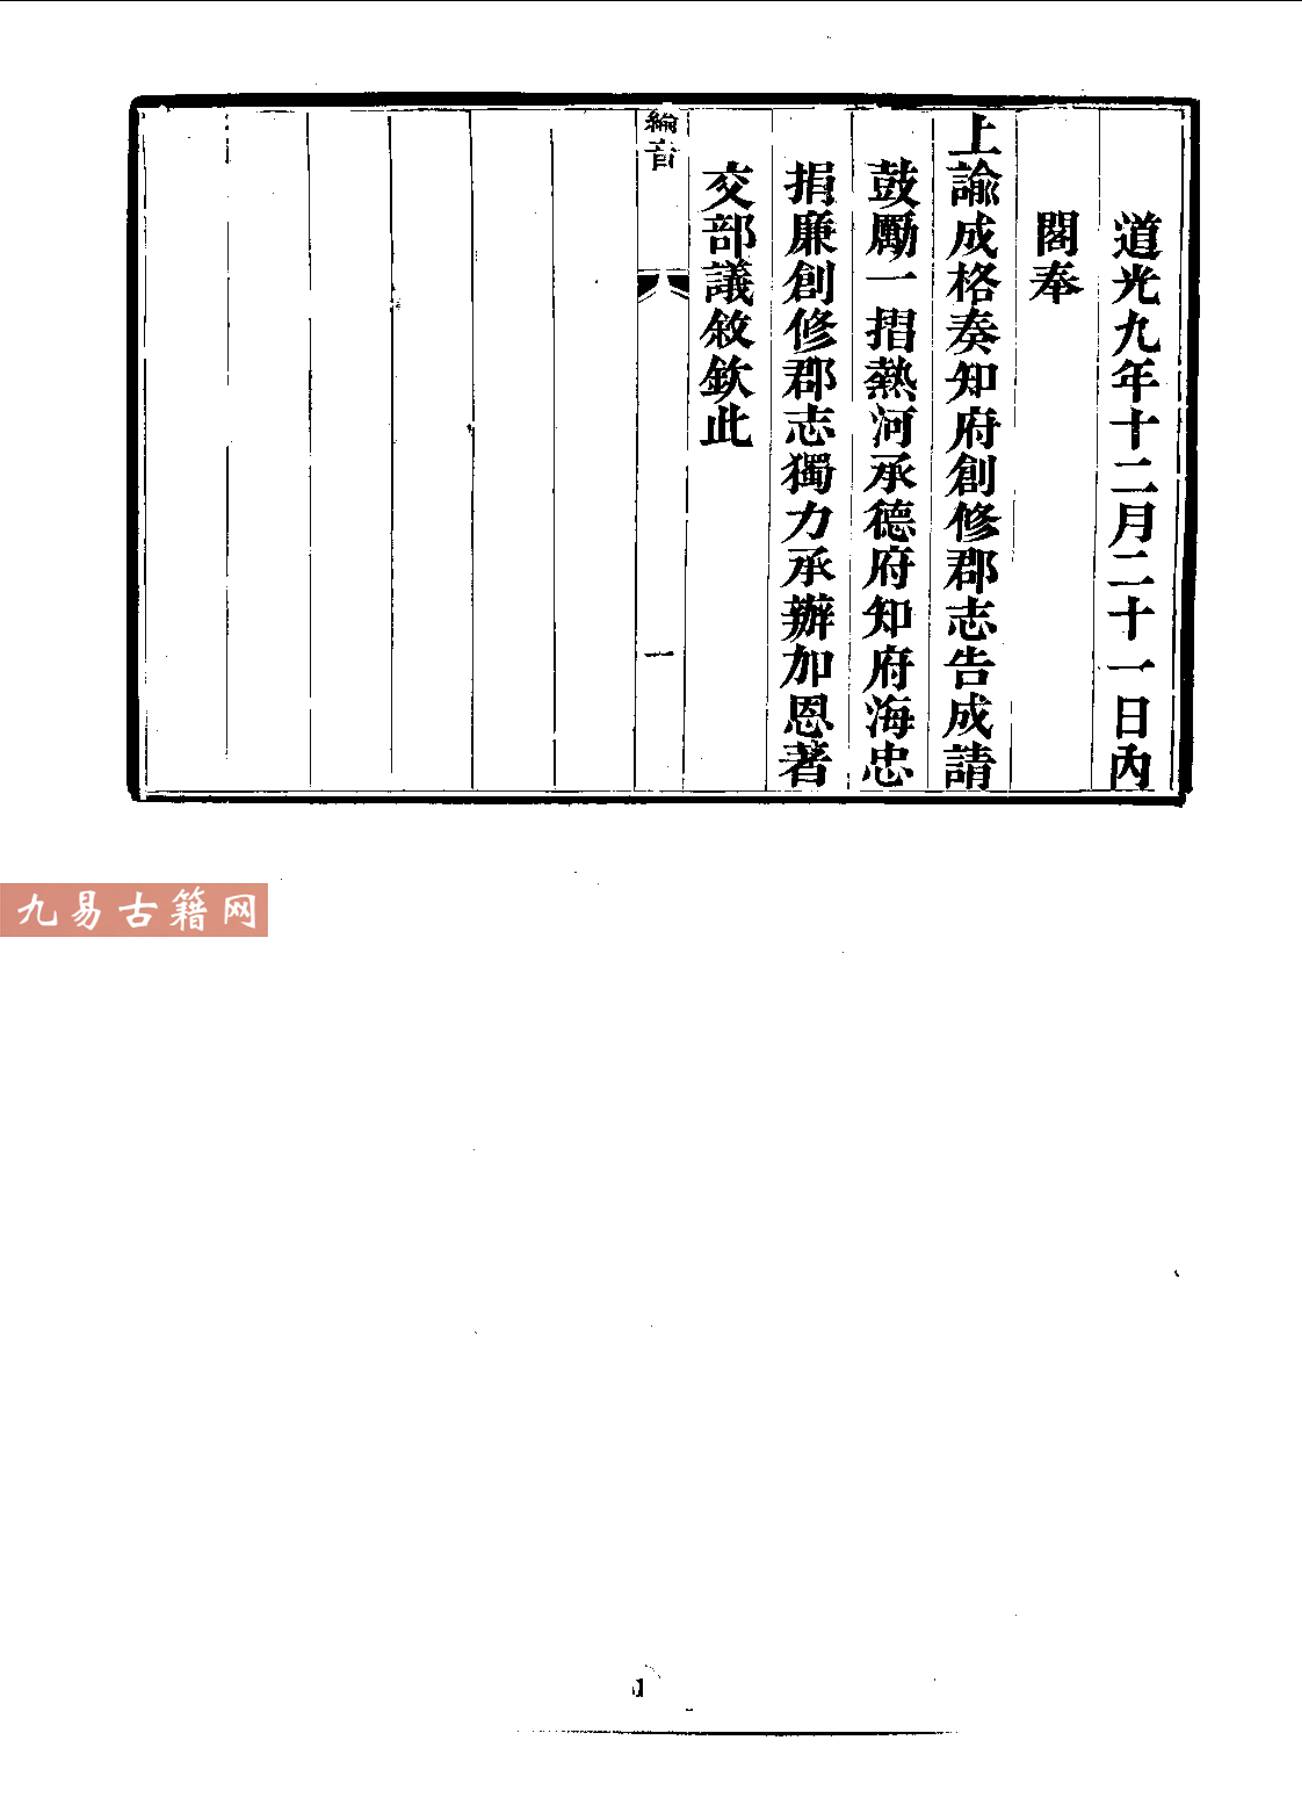 道光九年十二月二十一日內
閣奉
上諭成格奏知府創修郡志告成請
鼓勵一摺熱河承德府知府海忠
捐廉創修郡志獨力承辦加恩著
交部議敘欽此
綸音
一
九易古籍网